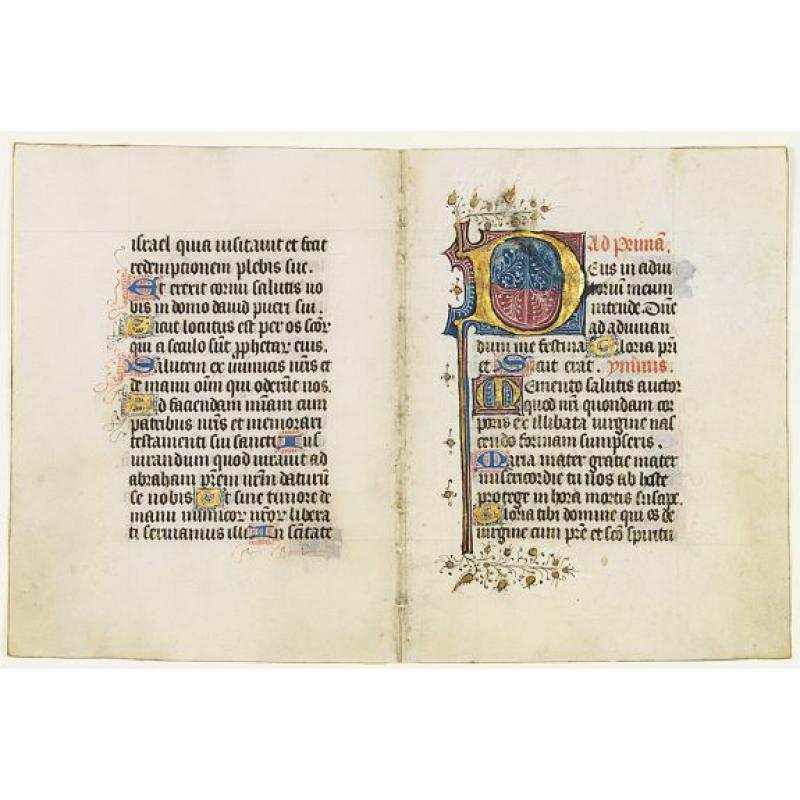 israel quia visitavit et fecit
redemptionem plebis sue.
Et erexit cornu salutis no
bis in domo david pueri sui.
Sicut locutus est per os scõr
qui a seculo sũt ꝓphetar eius.
Salutem ex inimicis nr̃is et
de manu oĩm qui oderũt nos.
Ad faciendam mĩam cum
patribus nr̃is et memorari
testamenti sui sancti Ius
iurandum quod iuravit ad
abraham pr̃em nr̃m daturũ
se nobis Ut sine timore de
manu inimicor nr̃or libera
ti serviamus illi In sc̃itate
Ad primã.
Deus in adiu
torium meum
intende. Dñe
ad adiuvan
dum me festina Gloria pr̃i
et Sicut erat. ymnus.
Memento salutis auctor
quod nr̃i quondam cor
poris ex illibata virgine nas
cendo formam sumpseris.
Maria mater gratie mater
misericordie tu nos ab hoste
protege in hora mortis suscipe.
Gloria tibi domine qui es de
virgine cum pr̃e et sc̃o spiritu